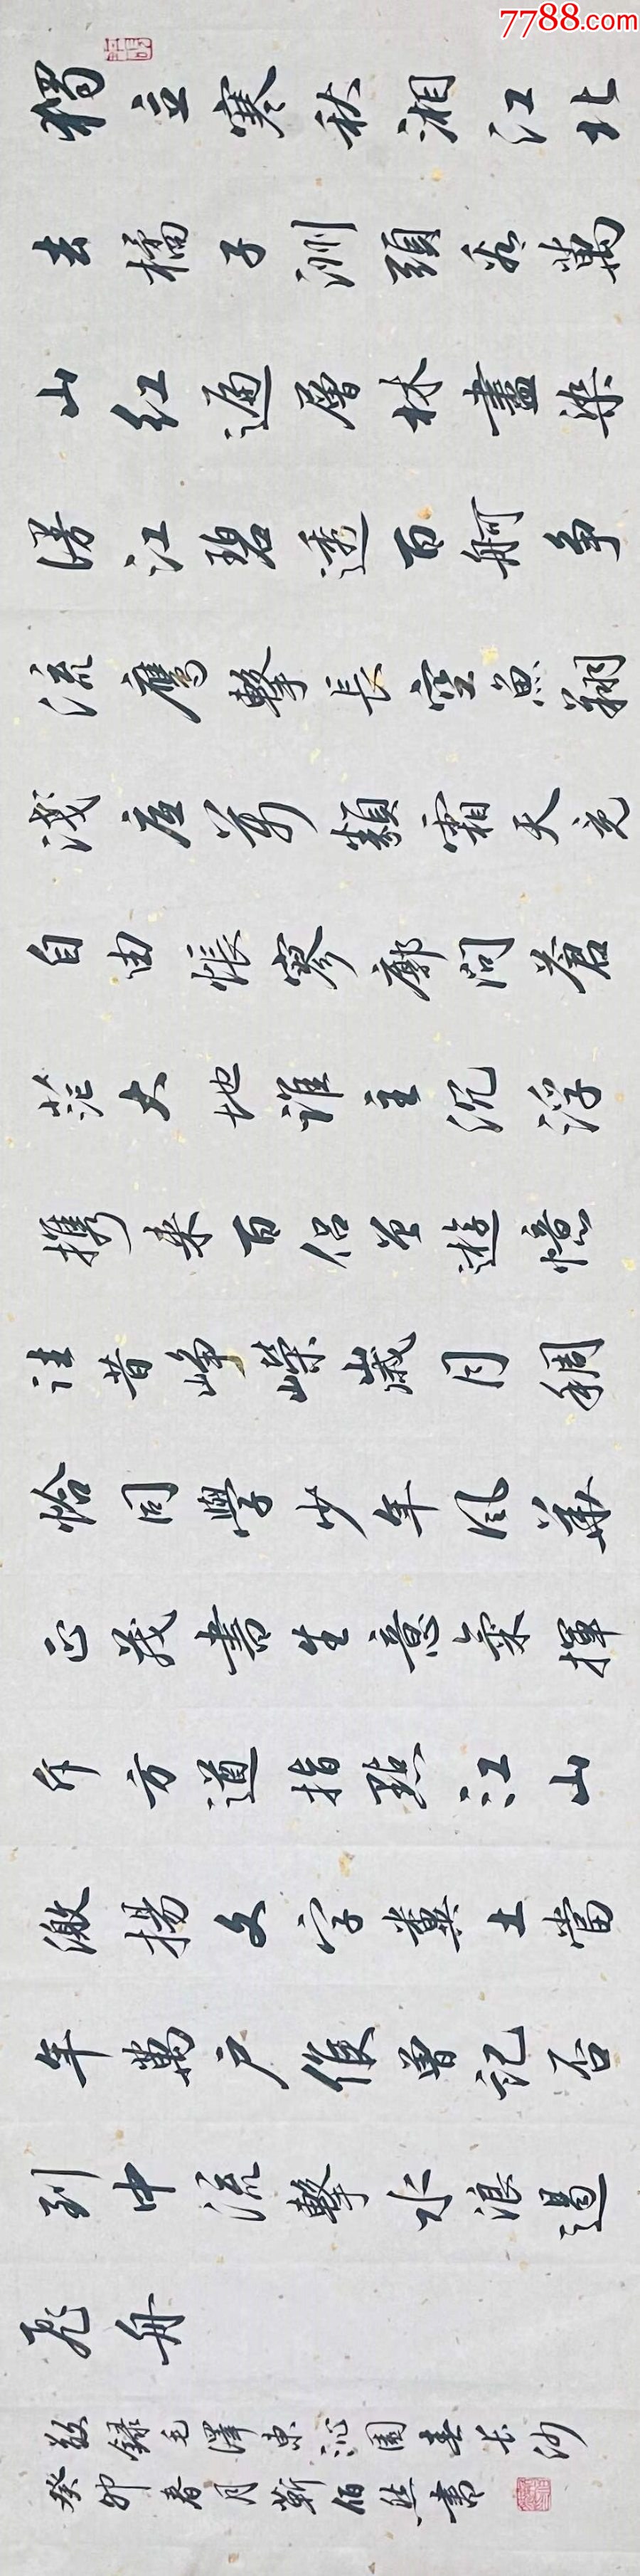 7788.com
獨立寒秋湘江北
去橘子洲頭看萬
山紅遍層林盡染
漫江碧透百舸争
流鷹擊長空魚翔
淺底萬類霜天競
自由悵寥廓問蒼
茫大地誰主沉浮
携来百侣曾遊憶
往昔崢嶸歲月稠
恰同學少年風華
正茂書生意氣揮
斥方遒指點江山
激揚文字糞土當
年萬户侯曾記否
到中流擊水浪遏
飛舟
敬録毛澤東沁園春長沙
癸卯春月靳伯然書